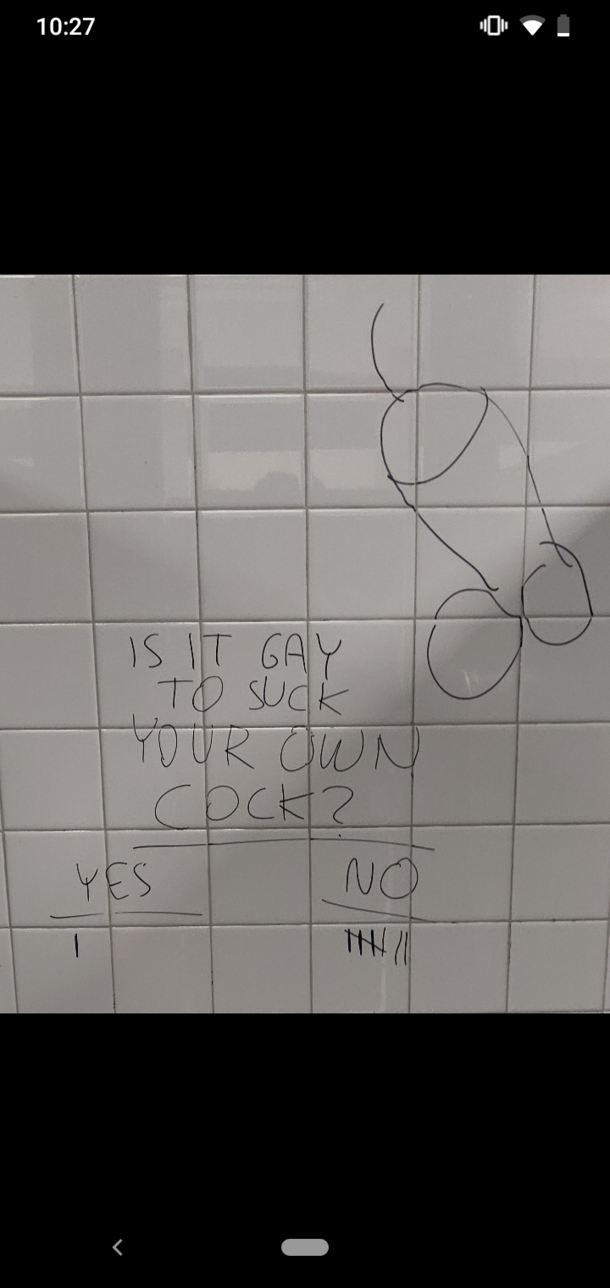 10:27
IS IT GAY
TO SUCK
YOUR OWN
COCK?
YES NO